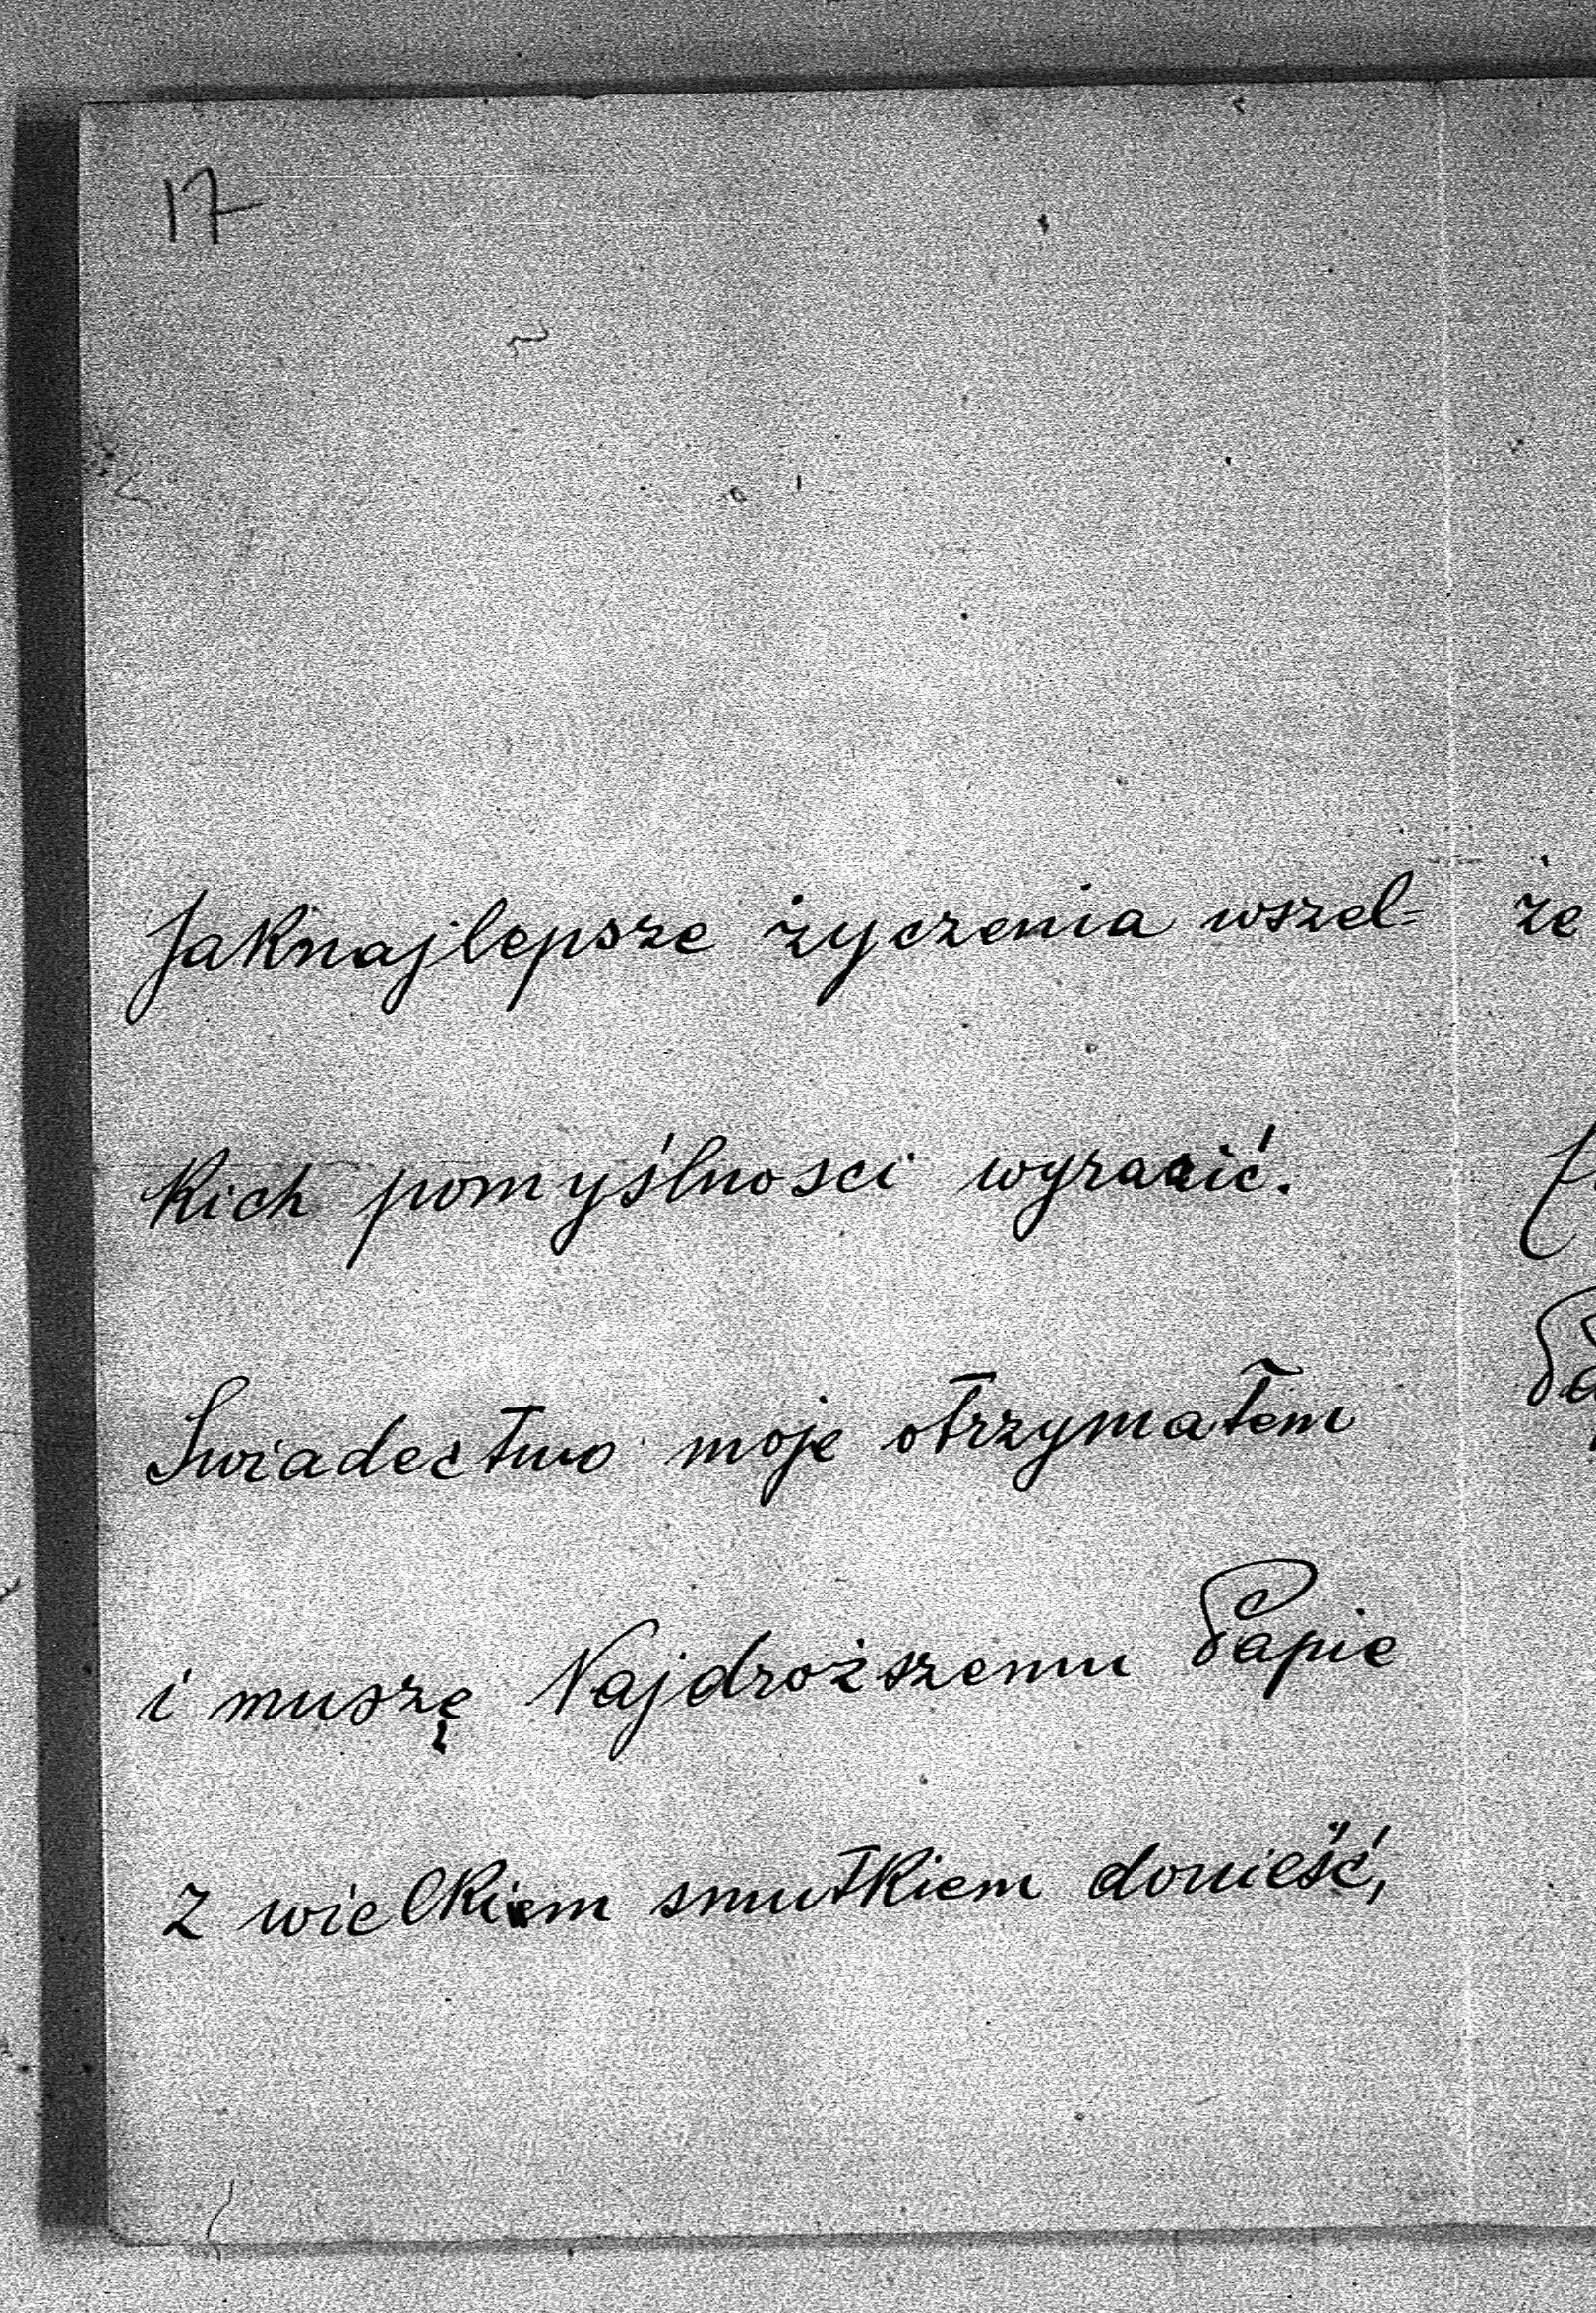 17
Jaknajlepsze życzenia wszel-
kich pomyślnosci wyrazić.
Swiadectwo moje otrzymałem
i muszę Najdroższemu Papie
z wielkiem smutkiem donieść,
że